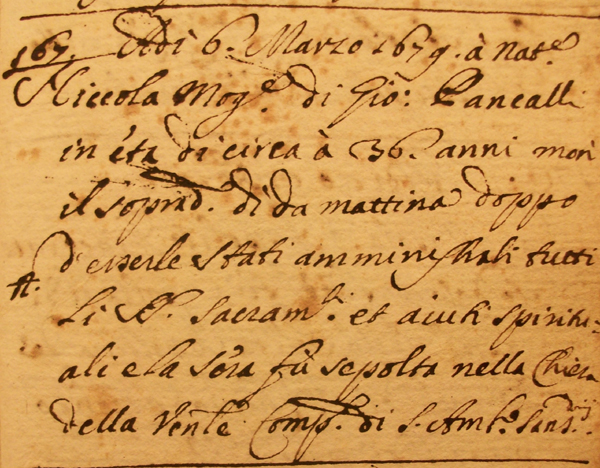 167. Adi 6. Marzo 1679. à Nat.e
Niccola Mog.e di Gio: Pancalli
in età di circa à 36. anni morì
il soprad.o dì da mattina doppo
d'esserle stati amministrati tutti
Li S.S. Sacram.ti et aiuti spiritu=
ali e la sera fù sepolta nella Chiesa
della Vent.e Comp.a di S. Amb.o
ff.